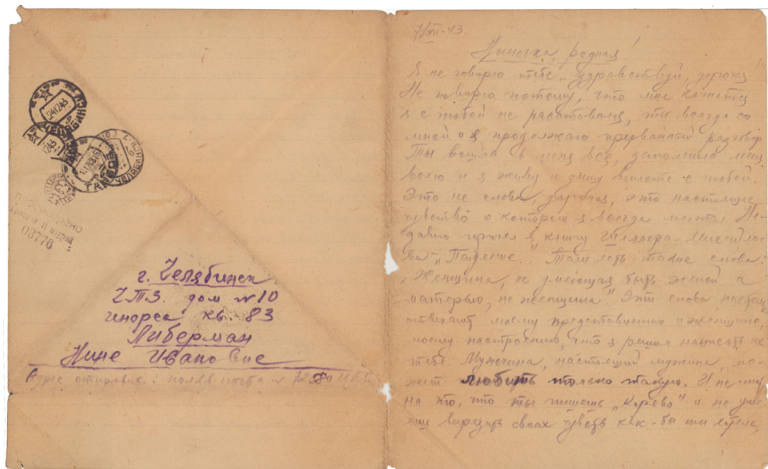 г. Челябинск
ЧТЗ. дом №10
инорса кв. 83
Либерман
Нине Ивановне
Адрес отправит.: полев. почта №
03778
7/XII-43
Ниночка, родная!
Я не говорю тебе „Здравствуй, дорогая!
Не говорю потому, что мне кажется
я с тобой не расставался, ты всегда со
мной и я продолжаю прерванный разговор
Ты вошла в меня вся, заполнила меня
всего и я живу и дышу вместе с тобой.
Это не слова, дорогая, это настоящее
чувство о котором я всегда мечтал. Не-
давно прочел я книгу
„Падение". Там есть такие слова:
„Женщина, не умеющая быть женой и
матерью, не женщина" Эти слова
отвечают моему представлению о женщине,
моему настроению, что я решил написать их
тебе. Мужчина, настоящий мужчина, мо-
жет любить только такую. И
на то, что ты пишешь „коряво" и не уме-
ешь выразить своих чувств как-бы ты хотела,